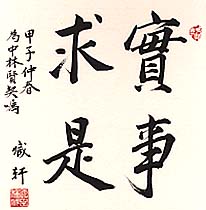 實事
求是
甲子仲春
為中林賢契嗎